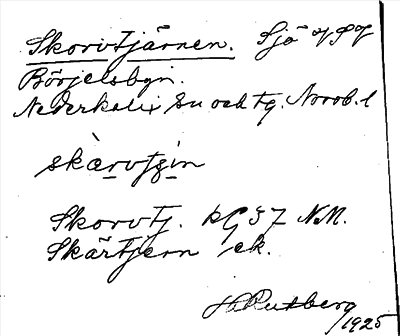 Skorvtjärnen. Sjö
Börjelsbyn.
Nederkalix sn och tg. Norrb. l
skàrvtjin
Skorvtj. kG 37 N.M.
Skärtjern ek.
H. Rutberg
1925